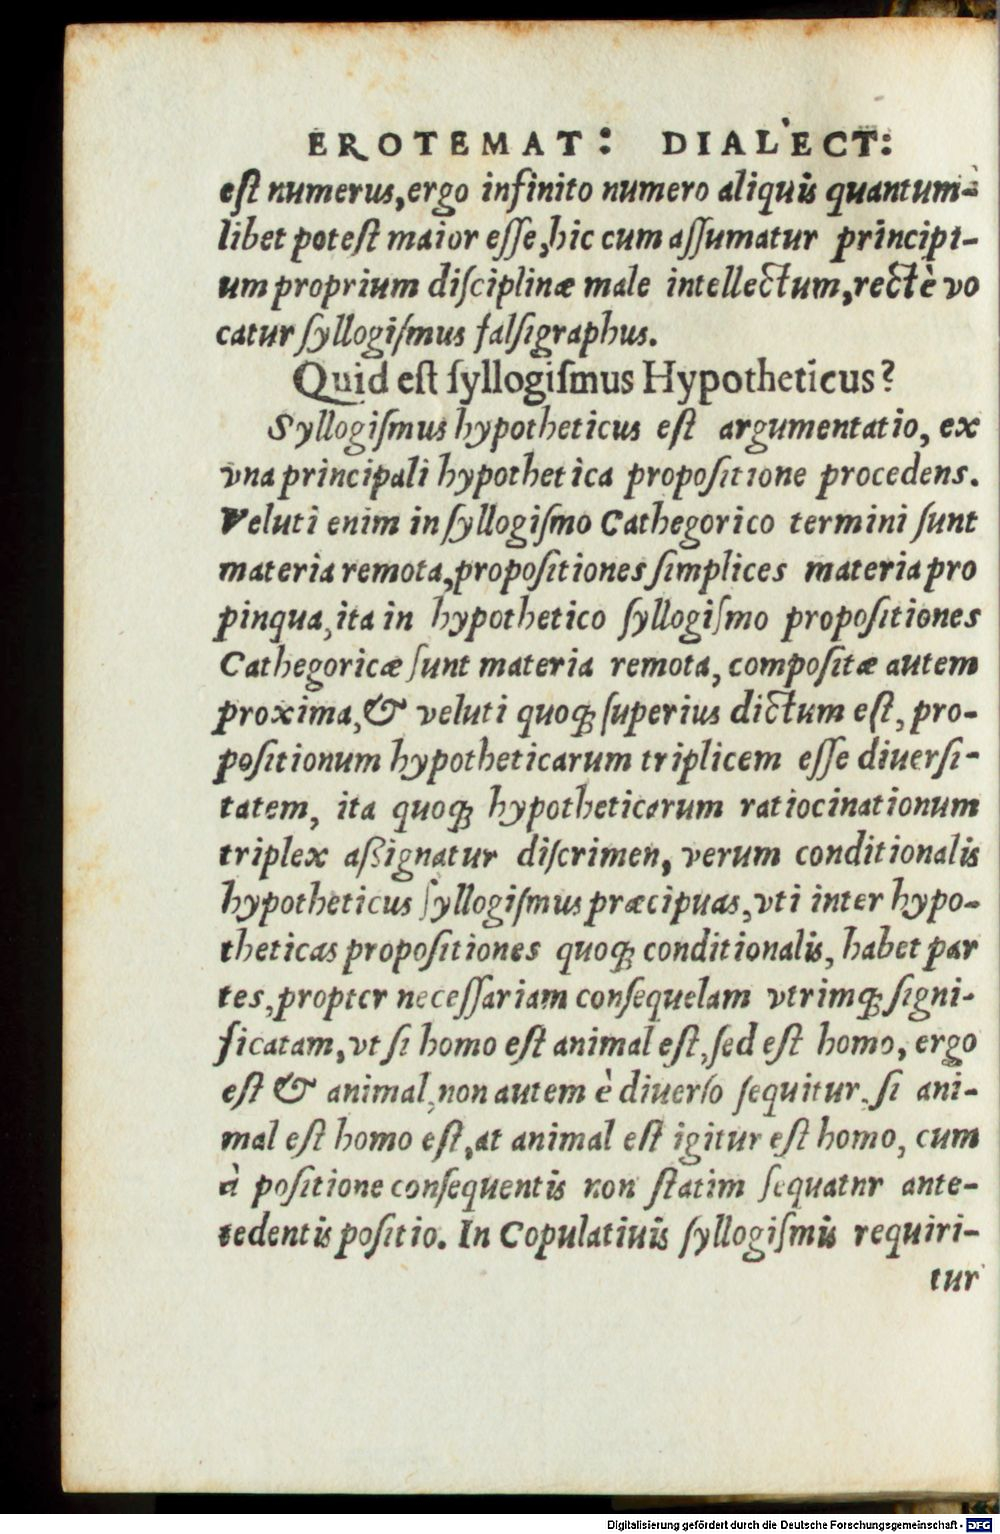 EROTEMAT: DIALECT:
eſt numerus, ergo infinito numero aliquis quantum-
libet poteſt maior eſſe, hic cum aſſumatur principi-
um proprium diſciplinæ male intellectum, rectè vo
catur ſyllogiſmus falſigraphus.
Quid eſt ſyllogiſmus Hypotheticus?
Syllogiſmus hypotheticus eſt argumentatio, ex
vna principali hypothetica propoſitione procedens.
Veluti enim in ſyllogiſmo Cathegorico termini ſunt
materia remota, propoſitiones ſimplices materia pro
pinqua, ita in hypothetico ſyllogiſmo propoſitiones
Cathegoricæ ſunt materia remota, compoſitæ autem
proxima, & veluti quoq; ſuperius dictum eſt, pro-
poſitionum hypotheticarum triplicem eſſe diuerſi-
tatem, ita quoq; hypotheticarum ratiocinationum
triplex aßignatur diſcrimen, verum conditionalis
hypotheticus ſyllogiſmus præcipuas, vti inter hypo-
theticas propoſitiones quoq; conditionalis, habet par
tes, propter neceſſariam conſequelam vtrimq; ſigni-
ficatam, vt ſi homo eſt animal eſt, ſed eſt homo, ergo
eſt & animal, non autem è diuerſo ſequitur. ſi ani-
mal eſt homo eſt, at animal eſt igitur eſt homo, cum
à poſitione conſequentis non ſtatim ſequatnr ante-
tedentis poſitio. In Copulatiuis ſyllogiſmis requiri-
tur
Digitalisierung gefördert durch die Deutsche Forschungsgemeinschaft - DFG